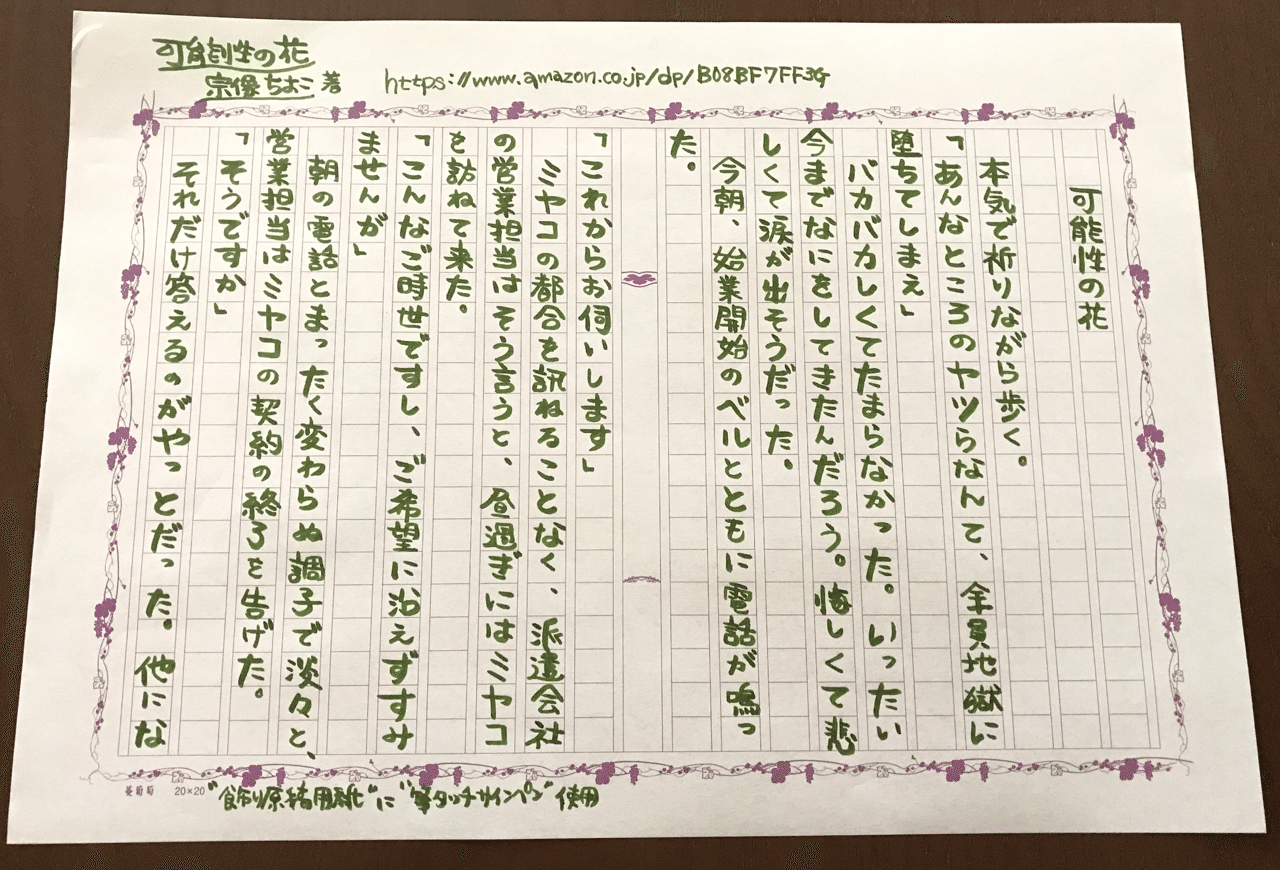 可能性の花
宗像ちよこ 著
https://www.amazon.co.jp/dp/B08BF7FF3G
可能性の花
本気で祈りながら歩く。
「あんなところのヤツらなんて、全員地獄に
堕ちてしまえ」
バカバカしくてたまらなかった。いったい
今までなにをしてきたんだろう。悔しくて悲
しくて涙が出そうだった。
今朝、始業開始のベルとともに電話が鳴っ
た。
「これからお伺いします」
ミヤコの都合を訊ねることなく、派遣会社
の営業担当はそう言うと、昼過ぎにはミヤコ
を訪ねて来た。
「こんなご時世ですし、ご希望に沿えずすみ
ませんが」
朝の電話とまったく変わらぬ調子で淡々と、
営業担当はミヤコの契約の終了を告げた。
「そうですか」
それだけ答えるのがやっとだった。他にな
葡萄 20×20
"飾り原稿用紙"に"筆タッチサインペン"使用